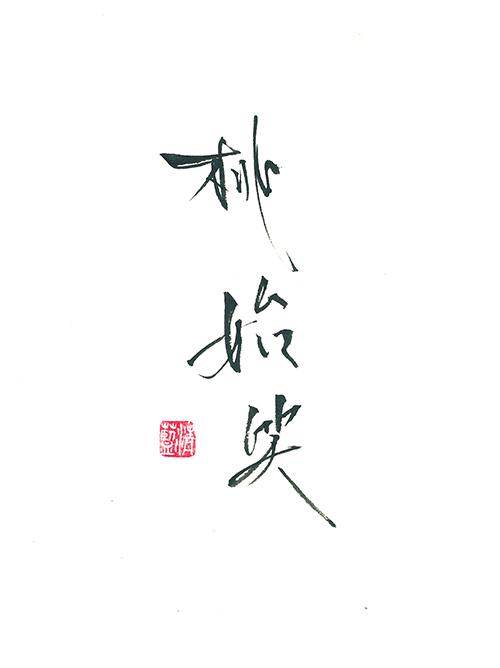 桃始笑